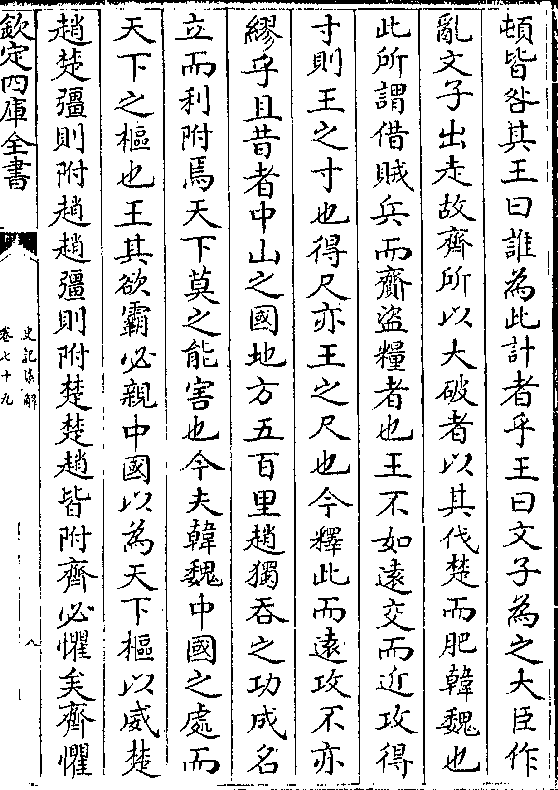 頓皆咎其王曰誰為此計者乎王曰文子為之大臣作
亂文子出走故齊所以大破者以其伐楚而肥韓魏也
此所謂借賊兵而齎盜糧者也王不如遠交而近攻得
寸則王之寸也得尺亦王之尺也今釋此而遠攻不亦
繆乎且昔者中山之國地方五百里趙獨吞之功成名
立而利附焉天下莫之能害也今夫韓魏中國之處而
天下之樞也王其欲霸必親中國以為天下樞以威楚
趙楚彊則附趙趙彊則附楚楚趙皆附齊必懼矣齊懼
欽定四庫全書
史記集解
卷七十九
八